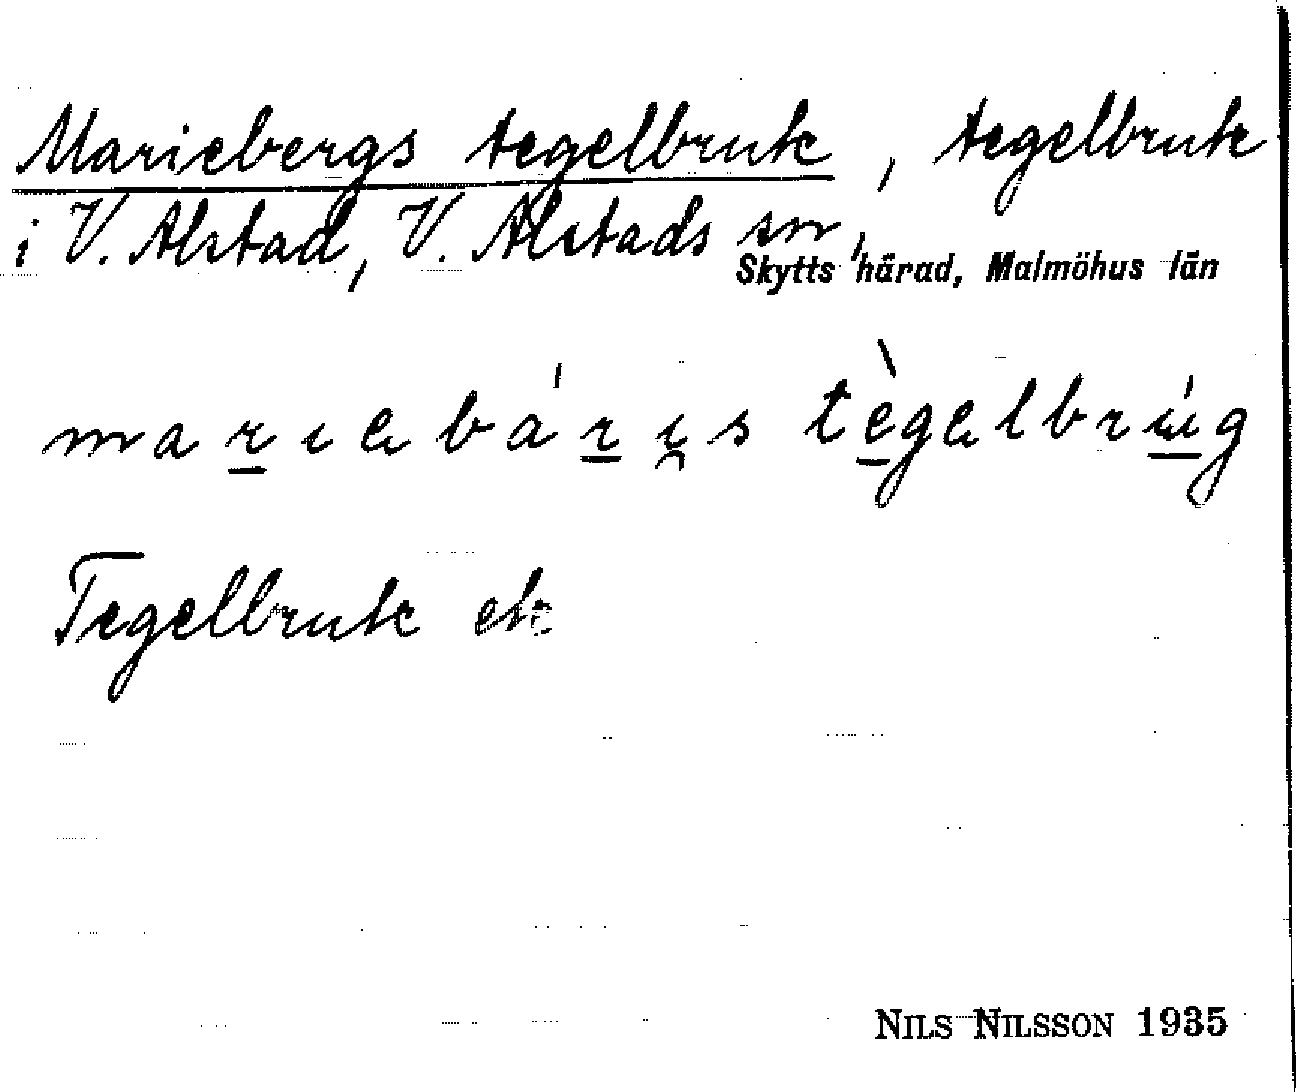 Mariebergs tegelbruk, tegelbruk
i V. Alstad, V. Alstads sn,
Skytts härad, Malmöhus län
marıebár̲ı̯s tè̲gelbrú̲g
Tegelbruk
NILS NILSSON 1935